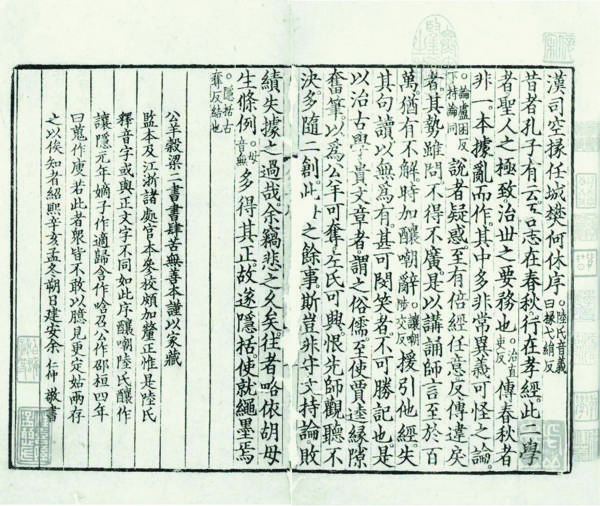 漢司空掾任城樊何休序○陸氏音義曰掾弋絹反
昔者孔子有云吾志在春秋行在孝經此二學
者聖人之極致治世之要務也○治直吏反傳春秋者
非一本據亂而作其中多非常異義可怪之論
○論盧困反下持論同說者疑惑至有倍經任意反傳違戾
者其勢雖問不得不廣是以講誦師言至於百
萬猶有不解時加釀嘲辭○讓嘲陟交反援引他經失
其句讀以無為有甚可閔笑者不可勝記也是
以治古學貴文章者謂之俗儒至使賈逵緣隙
奮筆以為公羊可奪左氏可興恨先師觀聽不
決多隨二創此之餘事斯豈非守文持論敗
績失據之過哉余竊悲之久矣往者略依胡毋
生條例○毋音無多得其正故遂隱括使就繩墨焉
○隱括古奪反結也
公羊穀梁二書書肆苦無善本謹以家藏
監本及江浙諸處官本參校頗加釐正惟是陸氏
釋音字或與正文字不同如此序釀嘲陸氏釀作
讓隱元年嫡子作適歸含作唅召公作邵桓四年
曰蒐作廋若此者衆皆不敢以臆見更定姑兩存
之以俟知者紹熙辛亥孟冬朔日建安余仁仲敬書